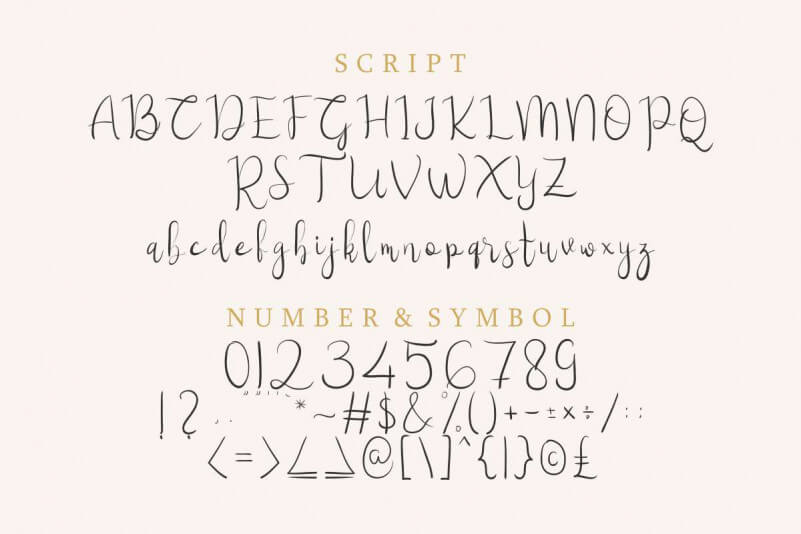 SCRIPT
ABCDEFGHIJKLMNOPQ
RSTUVWXYZ
abcdefghijklmnopqrstuvwxyz
NUMBER & SYMBOL
0123456789
!?.,""''"*~#$&%()+-±×÷/:;
<=>≤≥@[\]^{|}©£